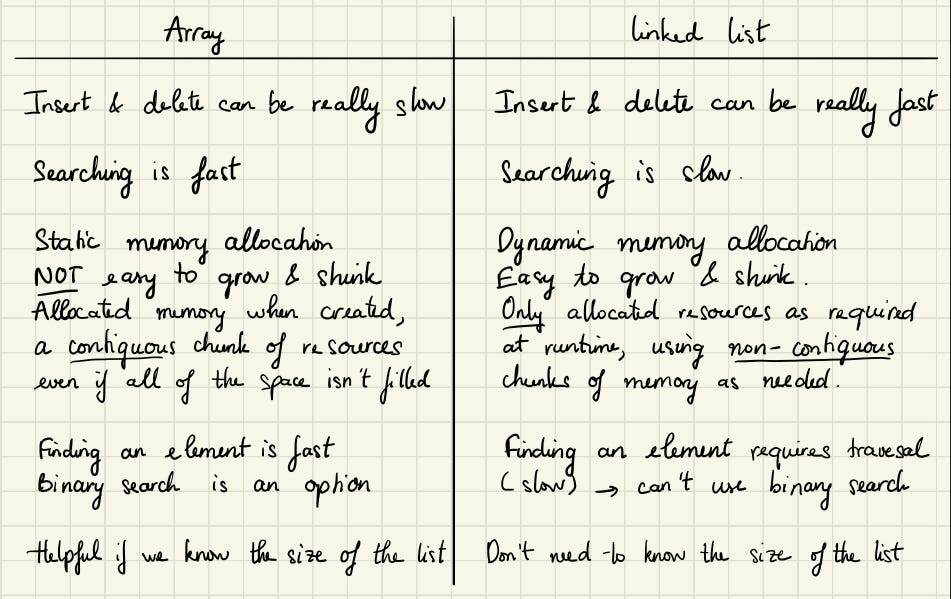 Array
Insert & delete can be really slow
Searching is fast
Static memory allocation
NOT easy to grow & shrink
Allocated memory when created,
a contiguous chunk of resources
even if all of the space isn't filled
Finding an element is fast
Binary search is an option
Helpful if we know the size of the list
linked list
Insert & delete can be really fast
Searching is slow.
Dynamic memory allocation
Easy to grow & shrink.
Only allocated resources as required
at runtime, using non-contiguous
chunks of memory as needed.
Finding an element requires travesal
(slow) → can't use binary search
Don't need to know the size of the list